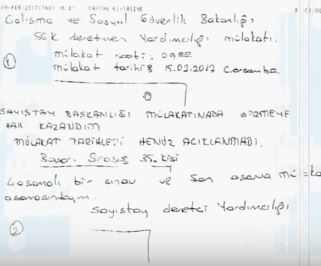 Çalışma ve Sosyal Güvenlik Bakanlığı
SGK denetmen Yardımcılığı mülakatı.
mülakat saati: 09:00
① mülakat tarihi: 15.02.2017 Çarşamba
SAYIŞTAY BAŞKANLIĞI MÜLAKATINADA GİRMEYE
HAK KAZANDIM
MÜLAKAT TARİHLERİ HENÜZ AÇIKLANMADI.
Başarı Sırası 35. kişi
4 aşamalı bir sınav ve Son aşama
aşamasındayım.
Sayıştay denetçi Yardımcılığı.
②